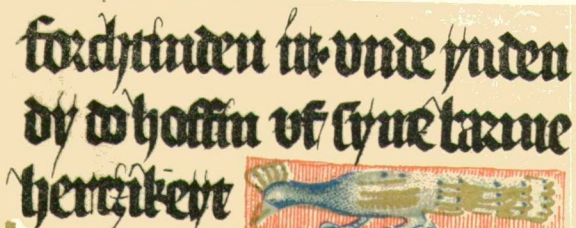 forchtinden in· vnde ynden
dy do hoffin vf syne barme
herczikeyt